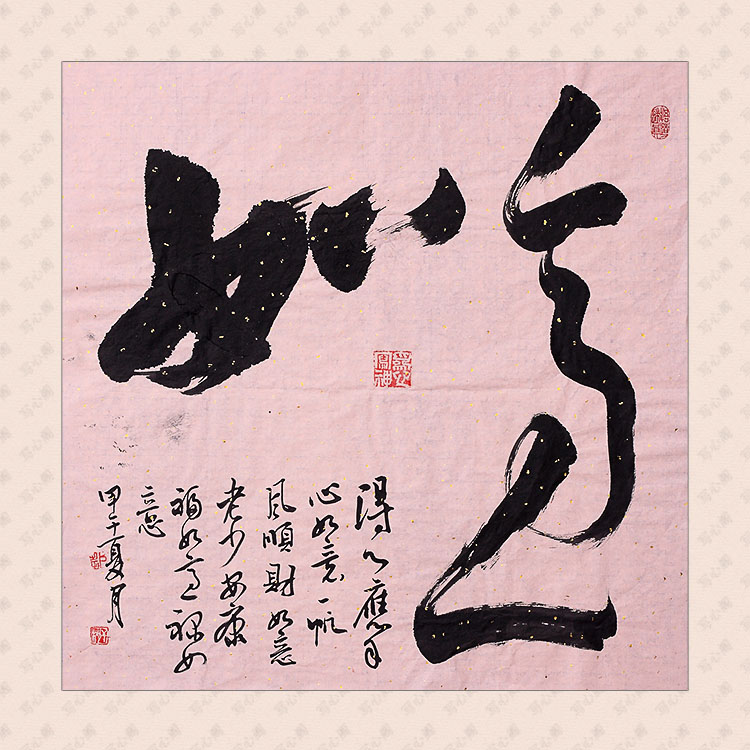 如意
得心應手
心如意一帆
風順財如意
老少安康
福如意祿如
意
甲午夏月
写心阁